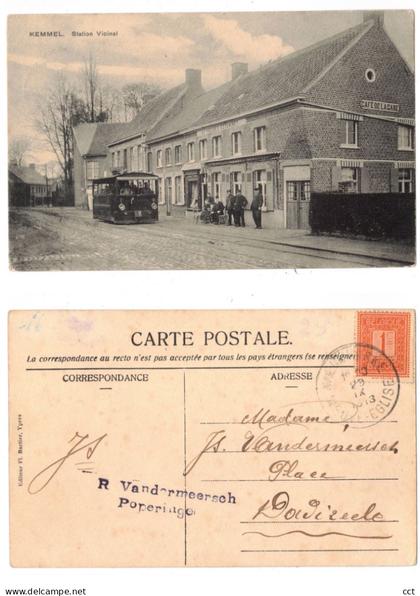 KEMMEL. Station Vicinal
CAFÉ DE LA GARE
CARTE POSTALE.
La correspondance au recto n'est pas acceptée par tous les pays étrangers (se renseigner
CORRESPONDANCE
ADRESSE
Madame,
Js. Vandermeersch
Place
Dadizeele
Js
R Vandermeersch
Poperinge
Editeur Fl. Bartier, Ypres
1
EGLISE
29
IX
cct